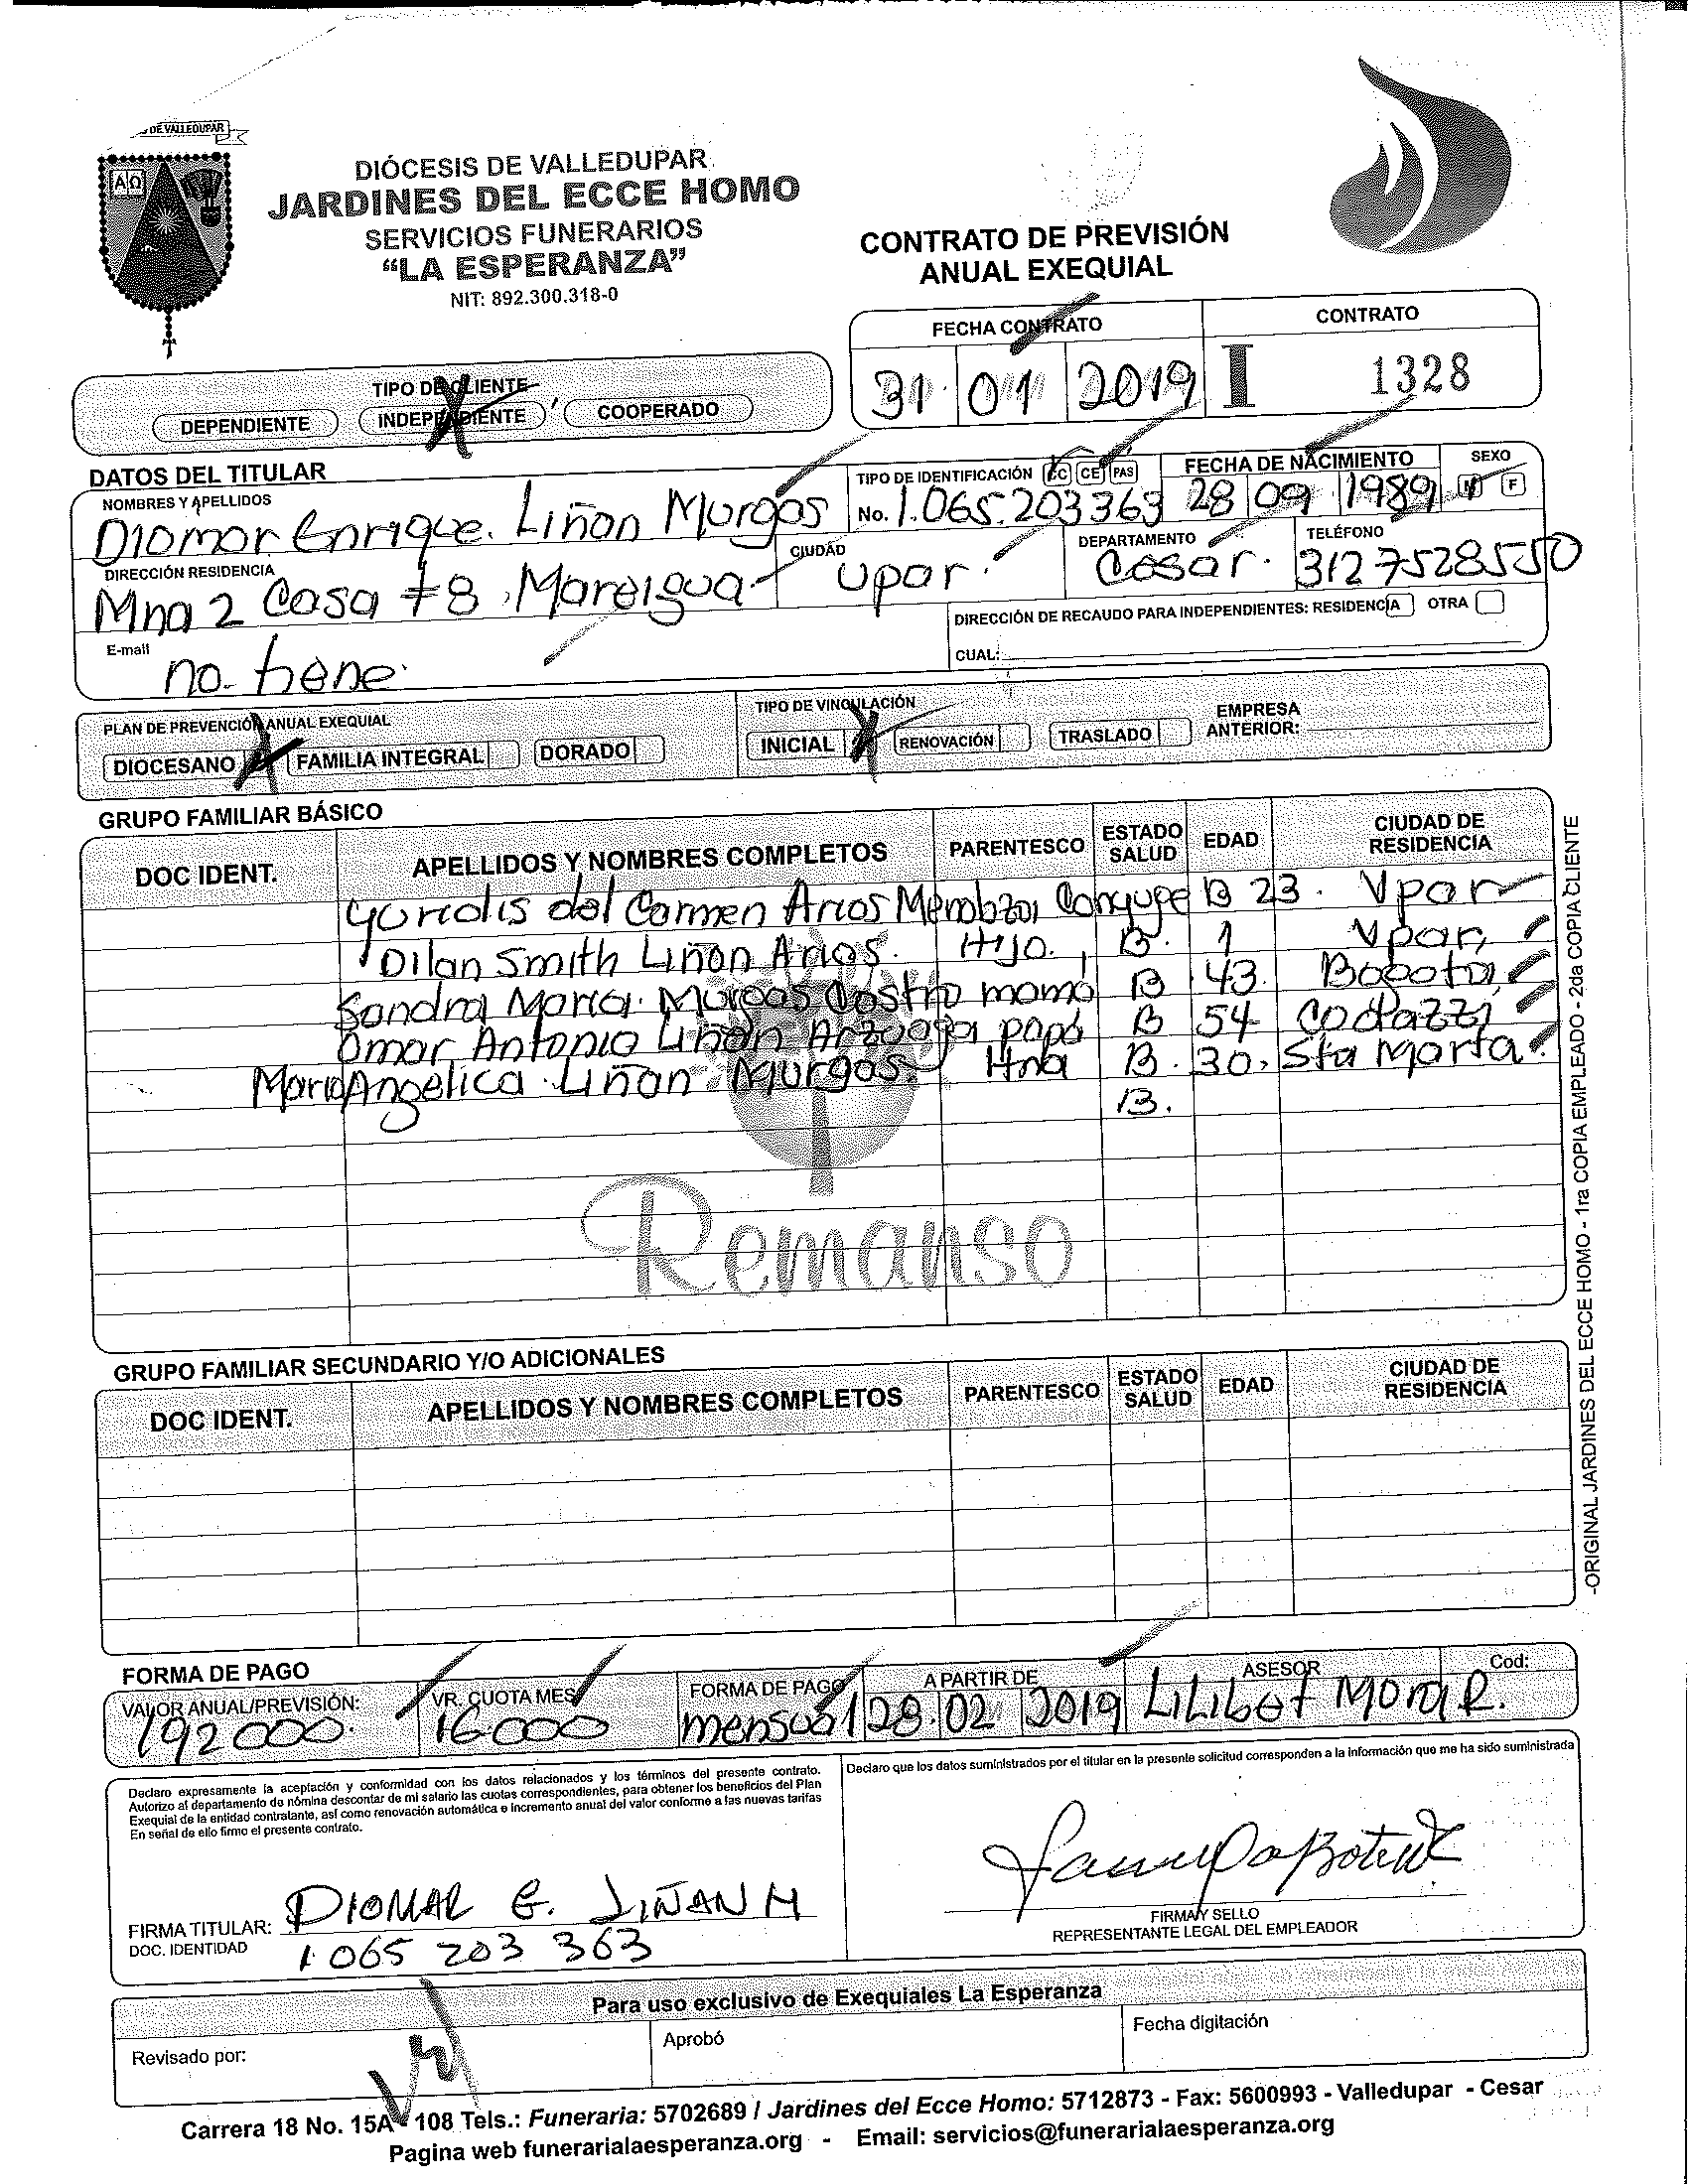 DE VALLEDUPAR
DIÓCESIS DE VALLEDUPAR
JARDINES DEL ECCE HOMO
SERVICIOS FUNERARIOS
“LA ESPERANZA”
NIT: 892.300.318-0
CONTRATO DE PREVISIÓN
ANUAL EXEQUIAL
FECHA CONTRATO CONTRATO
31 01 2019 I 1328
TIPO DE CLIENTE
DEPENDIENTE INDEPENDIENTE COOPERADO
DATOS DEL TITULAR
NOMBRES Y APELLIDOS TIPO DE IDENTIFICACIÓN CC CE PAS FECHA DE NACIMIENTO SEXO
Diomar Enrique. Liñan Murgas No. 1.065.203363 28 09 1989 M F
DIRECCIÓN RESIDENCIA CIUDAD DEPARTAMENTO TELÉFONO
Mna 2 Casa #8 Mareigua Upar. Cesar. 3127528550
DIRECCIÓN DE RECAUDO PARA INDEPENDIENTES: RESIDENCIA OTRA
E-mail no tiene CUAL:
PLAN DE PREVENCIÓN ANUAL EXEQUIAL TIPO DE VINCULACIÓN
DIOCESANO X FAMILIA INTEGRAL DORADO INICIAL X RENOVACIÓN TRASLADO EMPRESA ANTERIOR:
GRUPO FAMILIAR BÁSICO
DOC IDENT. APELLIDOS Y NOMBRES COMPLETOS PARENTESCO ESTADO SALUD EDAD CIUDAD DE RESIDENCIA
Yoridis del Carmen Arias Mendoza Conyuge B 23. Vpar
Dilan Smith Liñan Arias. Hijo. B. 1 Vpar,
Sandra Maria Murgas Castro mamá B 43. Bogota,
Omar Antonio Liñan Arzuaga papá B 54 Codazzi
Maria Angelica Liñan Murgas. Hna B. 30, Sta Marta.
B.
Remanso
GRUPO FAMILIAR SECUNDARIO Y/O ADICIONALES
DOC IDENT. APELLIDOS Y NOMBRES COMPLETOS PARENTESCO ESTADO SALUD EDAD CIUDAD DE RESIDENCIA
-ORIGINAL JARDINES DEL ECCE HOMO - 1ra COPIA EMPLEADO - 2da COPIA CLIENTE
FORMA DE PAGO
VALOR ANUAL/PREVISIÓN: VR. CUOTA MES FORMA DE PAGO A PARTIR DE ASESOR Cod:
192000. 16000 mensual 28.02 2019 Lilibet Mora R.
Declaro expresamente la aceptación y conformidad con los datos relacionados y los términos del presente contrato.
Autorizo al departamento de nómina descontar de mi salario las cuotas correspondientes, para obtener los beneficios del Plan
Exequial de la entidad contratante, así como renovación automática e incremento anual del valor conforme a las nuevas tarifas
En señal de ello firmo el presente contrato.
Declaro que los datos suministrados por el titular en la presente solicitud corresponden a la información que me ha sido suministrada
FIRMA TITULAR: DIOMAR E. LIÑAN M
DOC. IDENTIDAD 1.065 203 363
FIRMA Y SELLO
REPRESENTANTE LEGAL DEL EMPLEADOR
Para uso exclusivo de Exequiales La Esperanza
Revisado por: Aprobó Fecha digitación
Carrera 18 No. 15A - 108 Tels.: Funeraria: 5702689 / Jardines del Ecce Homo: 5712873 - Fax: 5600993 - Valledupar - Cesar
Pagina web funerarialaesperanza.org - Email: servicios@funerarialaesperanza.org